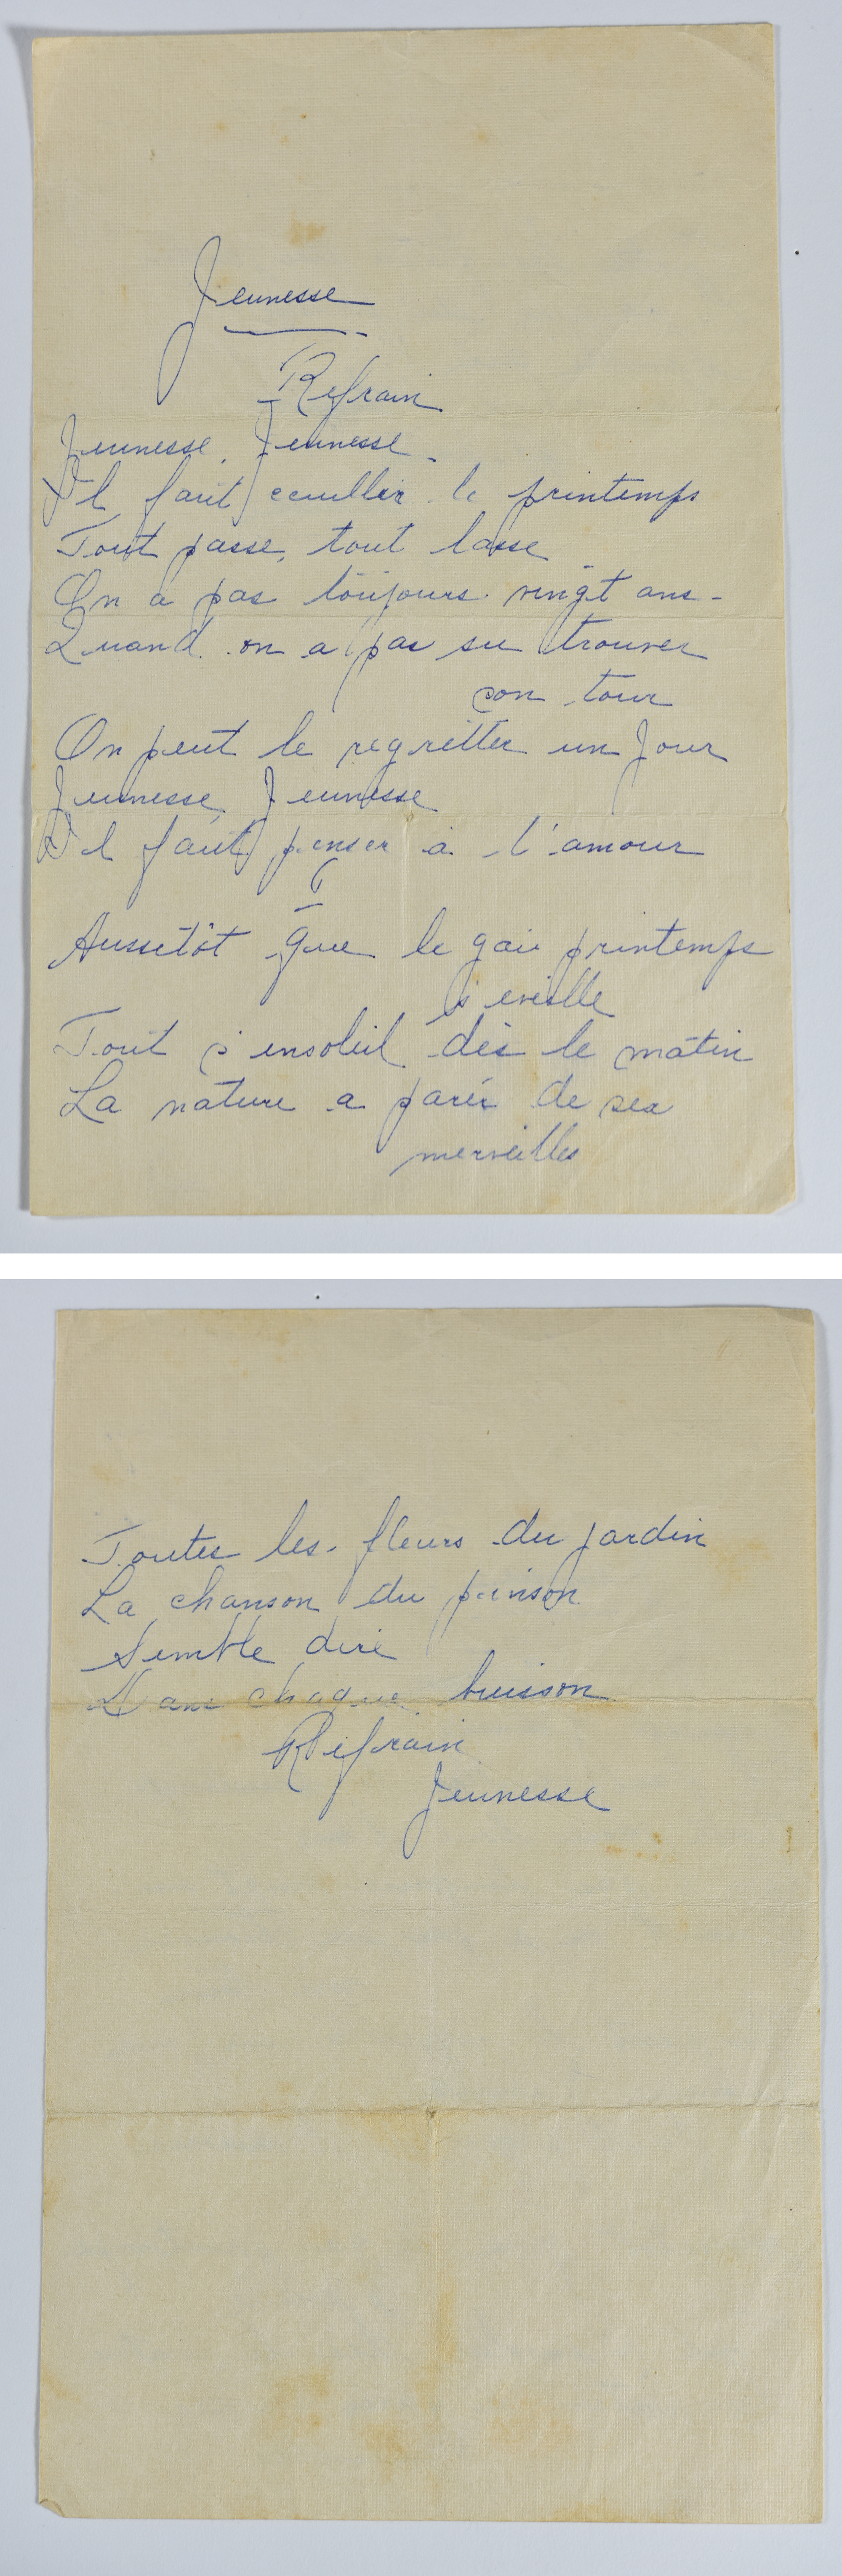 Jeunesse
Refrain
Jeunesse, Jeunesse.
Il faut ceuiller le printemps
Tout passe, tout lasse
On a pas toujours vingt ans-
Quand on a pas su trouver
son tour
On peut le regretter un Jour
Jeunesse, Jeunesse
Il faut penser à l'amour
I
Aussitôt que le gai printemps
s'eveille
Tout s'ensoleil dès le matin
La nature a parér de ses
merveilles
Toutes les fleurs du jardin
La chanson du pinson
Semble dire
Dans chaque buisson
Refrain
Jeunesse